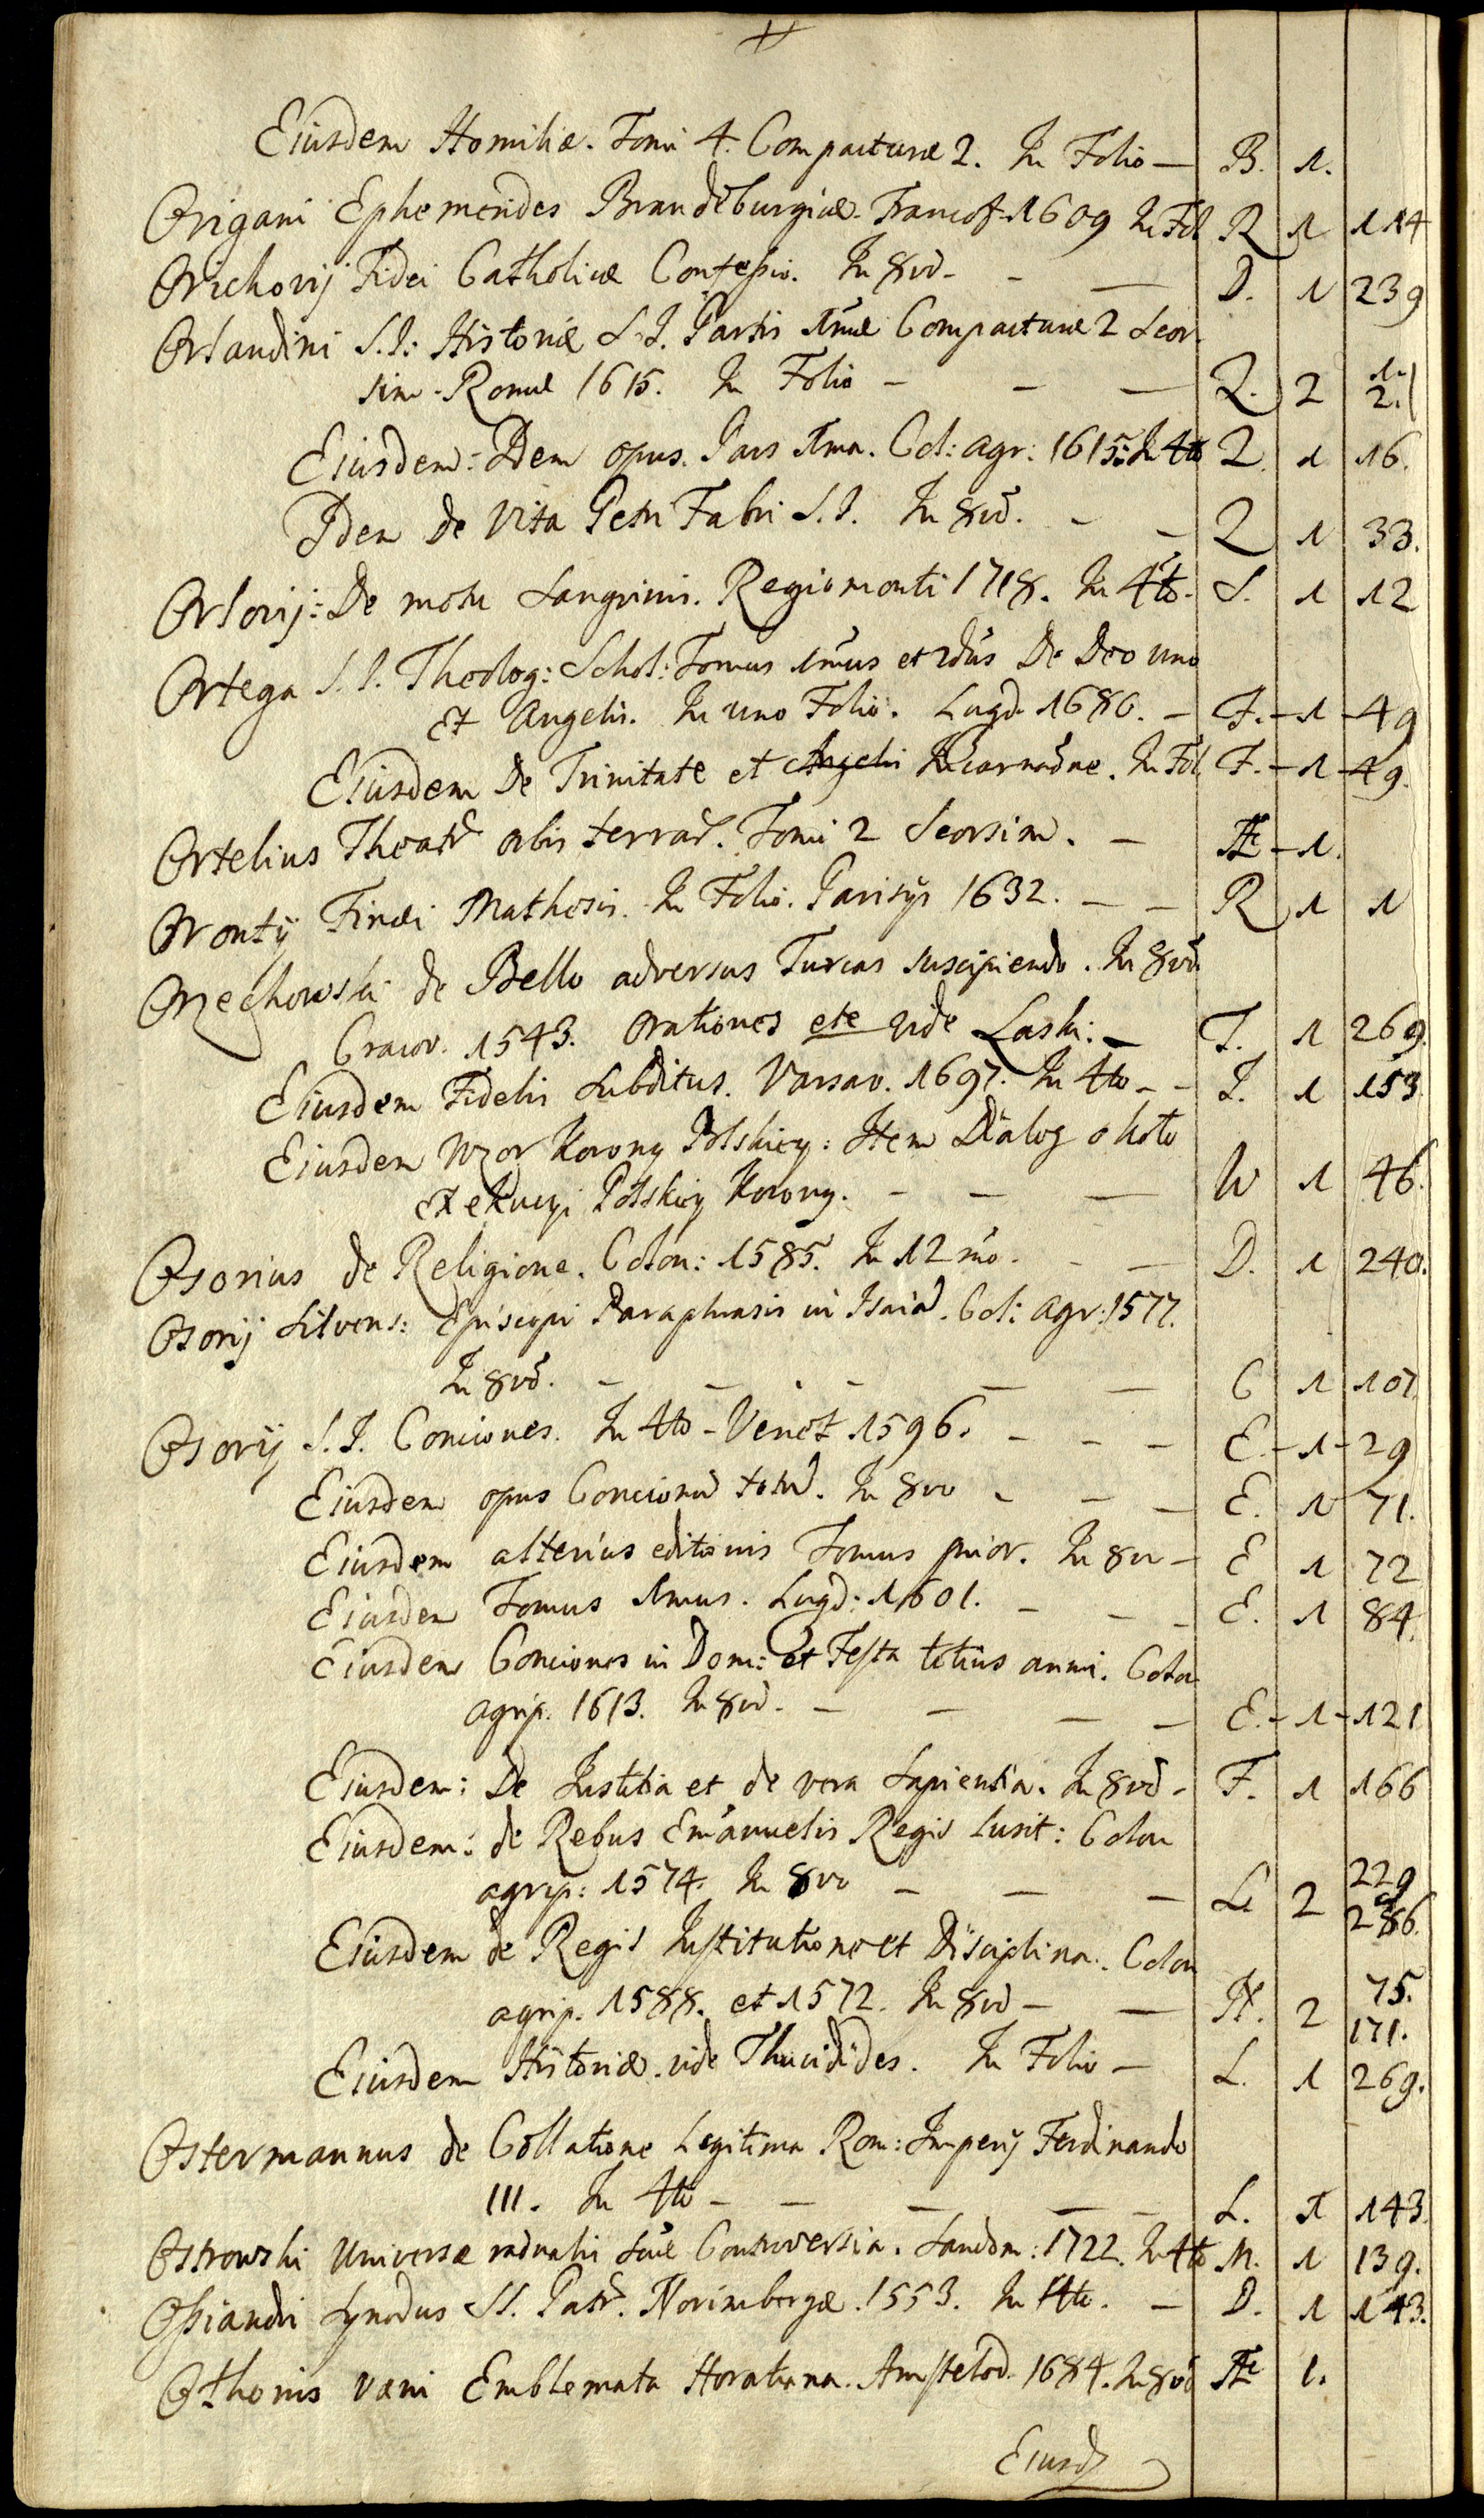 Eiusdem Homiliæ. Tomi 4. Compacturæ 2. In Folio — B. 1.
Origani Ephemerides Brandeburgicæ. Francof. 1609 In Fol R 1 114
Orichovij Fidei Catholicæ Confessio. In 8vo. - — D. 1 239
Orlandini S.I: Historiæ S.I. Partis 1mæ Compacturæ 2 Seor
sim. Romæ 1615. In Folio - — — 2. 2 1. 2.
Eiusdem: Idem opus. Pars 1ma. Col: agr: 1615. In 4to 2. 1 16.
Idem de Vita Petri Fabri S.I. In 8vo. - — 2 1 33.
Orlovij: De motu Sangvinis. Regiomonti 1718. In 4to. S. 1 12
Ortega S.I. Theolog: Schol: Tomus 1mus et 2dus De Deo uno
et Angelis. In uno Folio. Lugd. 1680. - F. - 1 - 49
Eiusdem De Trinitate et Angelis Incarnaõne. In Fol F. - 1 - 49.
Ortelius Theatr orbis terrar. Tomi 2 Seorsim. - - 1.
Orontij Finæi Mathesis. In Folio. Parisijs 1632. - - R 1 1
Orzechowski de Bello adversus Turcas suscipiendo. In 8vo
Cracov. 1543. Orationes etc vide Laski: - I. 1 269.
Eiusdem Fidelis Subditus. Varsav. 1697. In 4to - - I. 1 153
Eiusdem Wzor Korony Polskiey: Item Dialog około
exekucyi Polskiey Korony. - — — W 1 46.
Osorius de Religione. Colon: 1585. In 12mo. - — D. 1 240.
Osorij Silvens: Episcopi Paraphrasis in Isaia. Col: Agr: 1577.
In 8vo. - - - - — — C 1 107
Osorij S.I. Conciones. In 4to - Venet 1596. - - - E. - 1 - 29
Eiusdem opus Concionu totu. In 8vo - - — E. 1 71.
Eiusdem alterius editionis Tomus prior. In 8vo - E 1 72
Eiusdem Tomus 1mus. Lugd: 1601. - - - E. 1 84.
Eiusdem Conciones in Dom: et Festa totius anni. Colon
agrip. 1613. In 8vo. - - - - E. - 1 - 121
Eiusdem: De Iustitia et de vera Sapientia. In 8vo - F. 1 166
Eiusdem: de Rebus Emanuelis Regis Lusit: Colon
agrip: 1574. In 8vo - — - L 2 229 et 286.
Eiusdem de Regis Institutione et Disciplina. Colon
agrip. 1588. et 1572. In 8vo - — H. 2 75. 171.
Eiusdem Historiæ. vide Thucidides. In Folio - L. 1 269.
Ostermannus de Collatione Legitima Rom: Imperij Ferdinando
III. In 4to - - - — - L. 1 143.
Ostrowski Universæ Controversia. Sandom: 1722. In 4to M. 1 139.
Ossiandri Synodus SS. Patr. Norimbergæ. 1553. In 4to. - D. 1 143.
Othonis Væni Emblemata Horatiana. Amstelod. 1684. In 8vo 1.
Eiusd